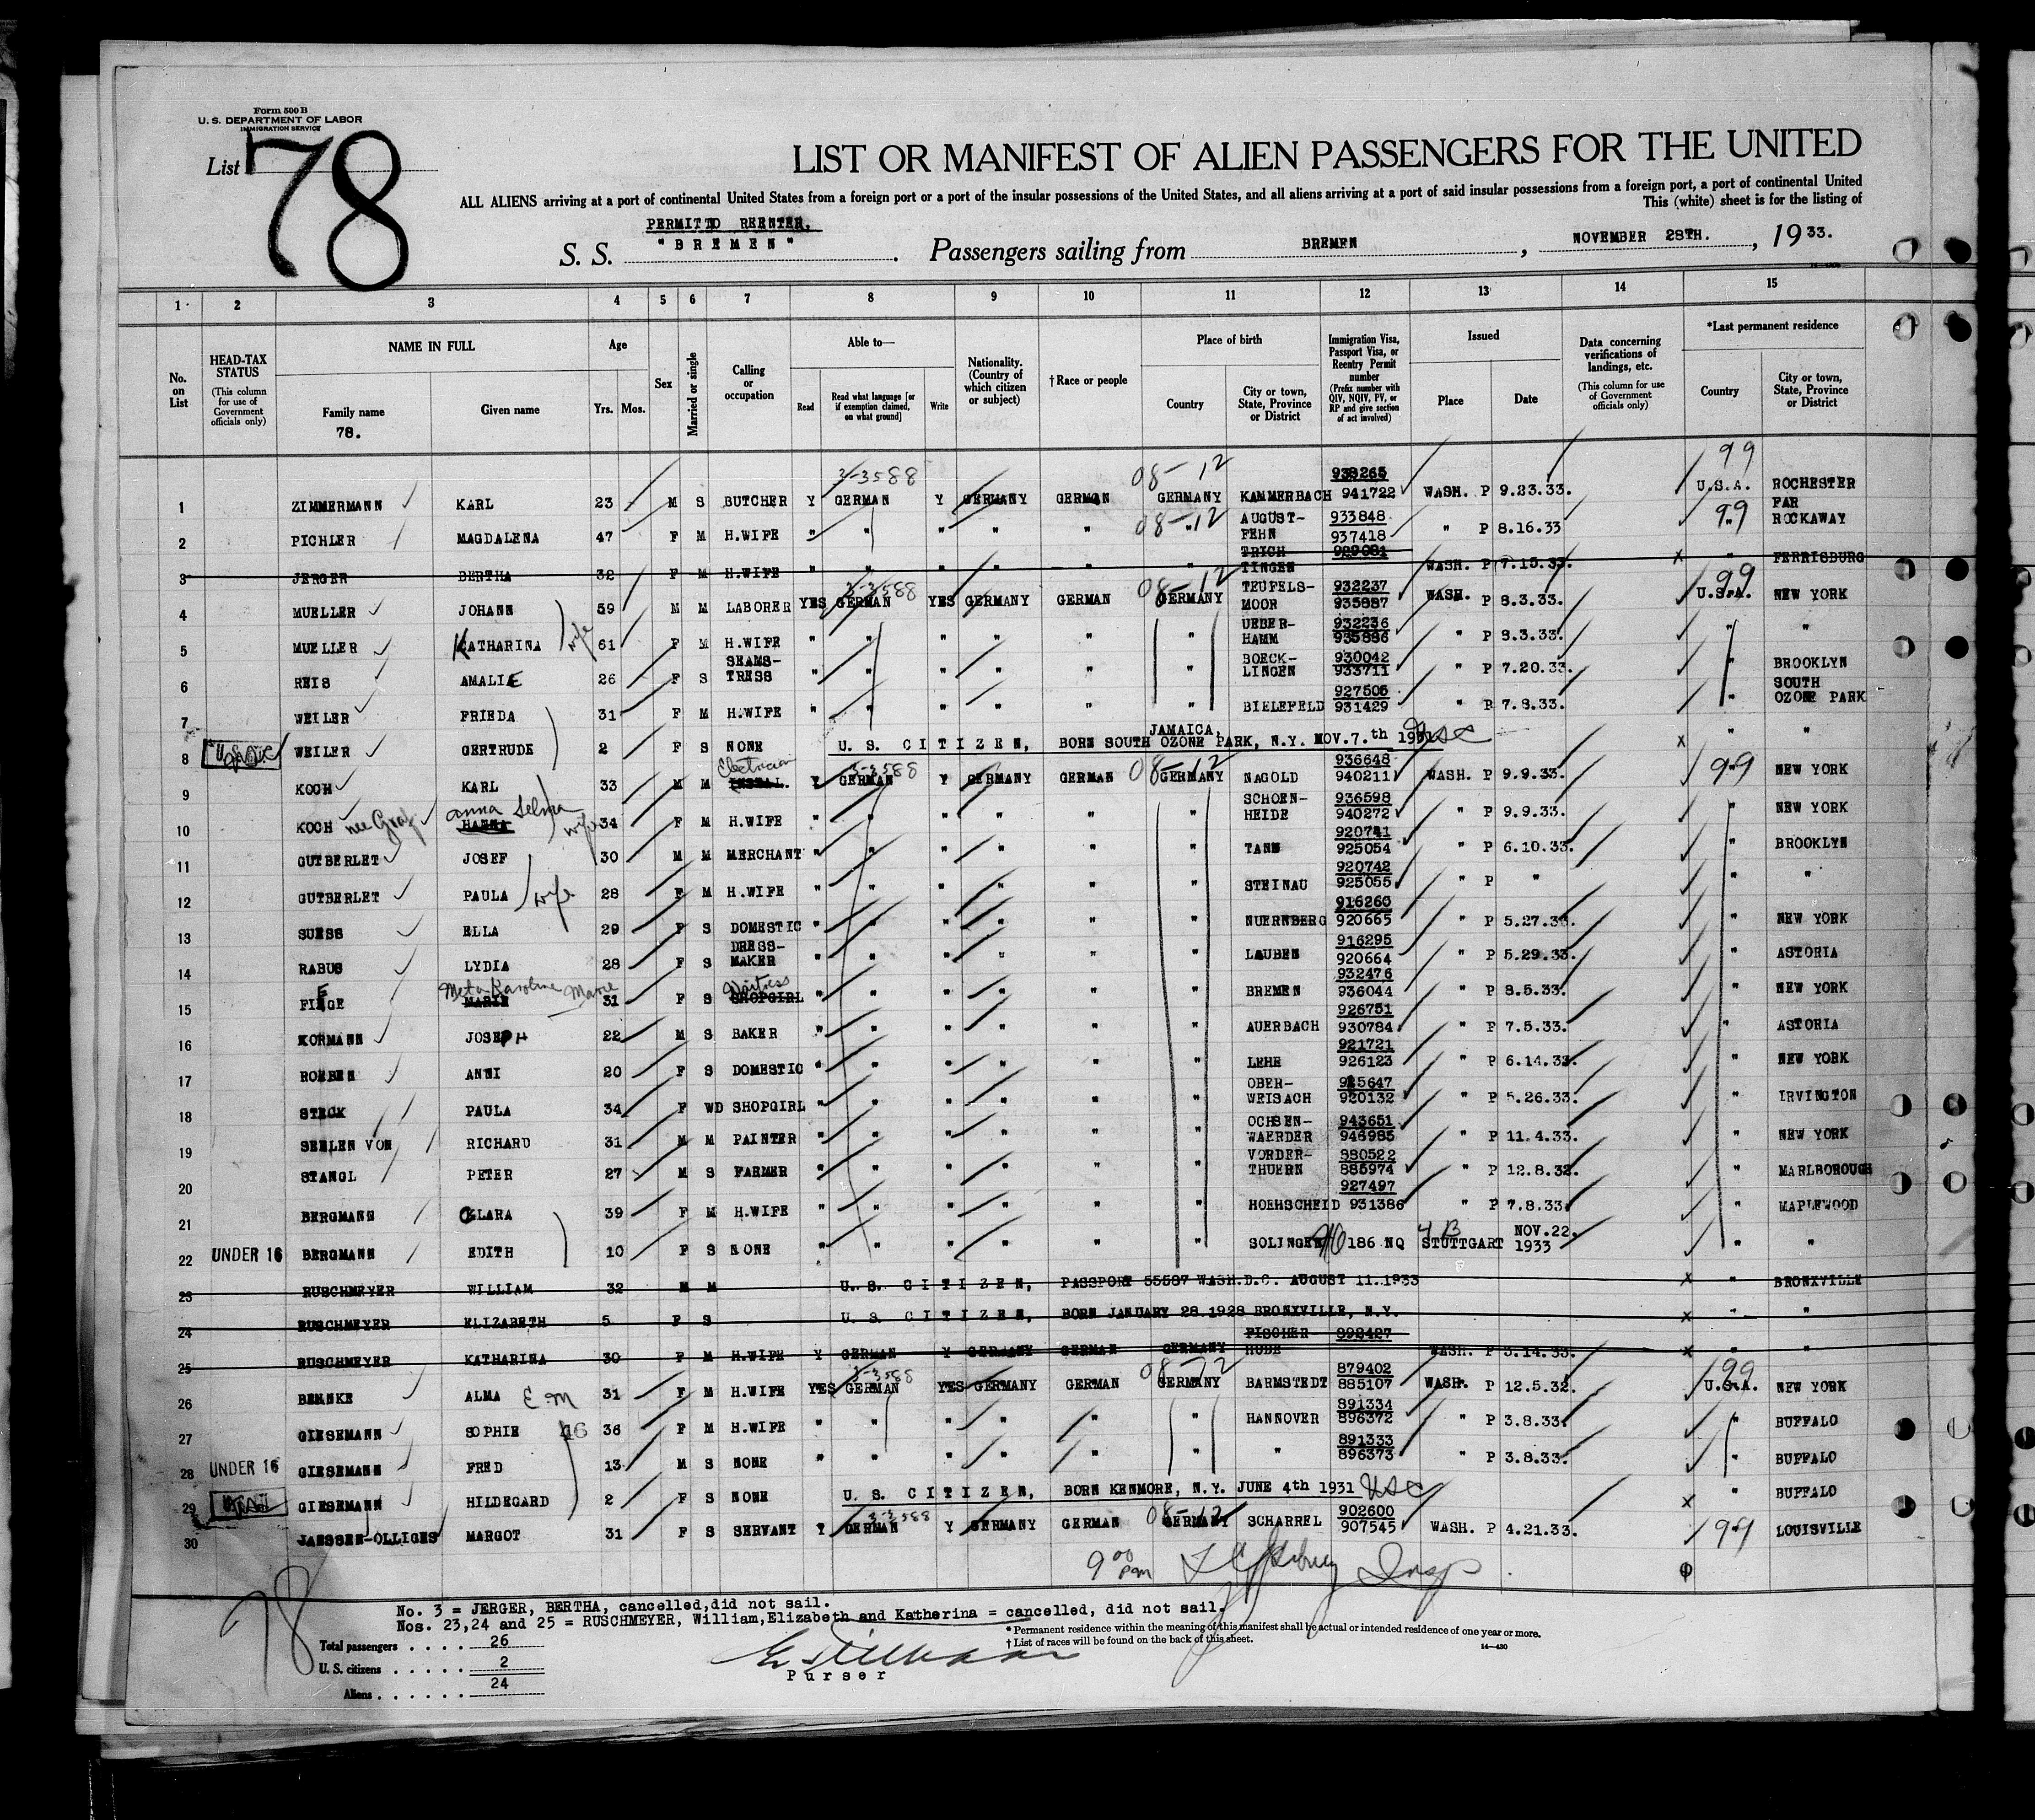 Form 500 B
U. S. DEPARTMENT OF LABOR
IMMIGRATION SERVICE
List 78
LIST OR MANIFEST OF ALIEN PASSENGERS FOR THE UNITED
ALL ALIENS arriving at a port of continental United States from a foreign port or a port of the insular possessions of the United States, and all aliens arriving at a port of said insular possessions from a foreign port, a port of continental United
This (white) sheet is for the listing of
PERMIT TO REENTER.
S. S. "BREMEN". Passengers sailing from BREMEN, NOVEMBER 28TH., 1933.
1 2 3 4 5 6 7 8 9 10 11 12 13 14 15
No. on List
HEAD-TAX STATUS (This column for use of Government officials only)
NAME IN FULL Family name Given name
78.
Age Yrs. Mos.
Sex
Married or single
Calling or occupation
Able to— Read Read what language [or if exemption claimed, on what ground] Write
Nationality. (Country of which citizen or subject)
† Race or people
Place of birth Country City or town, State, Province or District
Immigration Visa, Passport Visa, or Reentry Permit number (Prefix number with QIV, NQIV, PV, or RP and give section of act involved)
Issued Place Date
Data concerning verifications of landings, etc. (This column for use of Government officials only)
*Last permanent residence Country City or town, State, Province or District
3-3588 08-12 938265 99
1 ZIMMERMANN KARL 23 M S BUTCHER Y GERMAN Y GERMANY GERMAN GERMANY KAMMERBACH 941722 WASH. P 9.23.33. U.S.A. ROCHESTER
2 PICHLER MAGDALENA 47 F M H.WIFE " " " " " 08-12 " AUGUST-FEHN 933848 937418 " P 8.16.33 99 " FAR ROCKAWAY
3 JERGER BERTHA 32 F M H.WIFE " " " " " " TRICH TINGEN 929081 WASH. P 7.15.33. x " FERRISBURG
4 MUELLER JOHANN 59 M M LABORER YES 3-3588 GERMAN YES GERMANY GERMAN 08-12 GERMANY TEUFELS-MOOR 932237 935887 WASH. P 8.3.33. 99 U.S.A. NEW YORK
5 MUELLER KATHARINA wife 61 F M H.WIFE " " " " " " UEBER-HAMM 932236 935886 " P 8.3.33. " "
6 REIS AMALIE 26 F S SEAMS-TRESS " " " " " " BOECK-LINGEN 930042 933711 " P 7.20.33. " BROOKLYN
7 WEILER FRIEDA 31 F M H.WIFE " " " " " " BIELEFELD 927505 931429 " P 7.8.33. " SOUTH OZONE PARK
8 WEILER GERTRUDE 2 F S NONE U. S. CITIZEN, BORN SOUTH OZONE PARK, JAMAICA, N.Y. NOV.7.th 1931 USC x "
9 KOCH KARL 33 M M INSTAL. Electrician Y 3-3588 GERMAN Y GERMANY GERMAN 08-12 GERMANY NAGOLD 936648 940211 WASH. P 9.9.33. 99 " NEW YORK
10 KOCH nee Graf HANNA Anna Selma wife 34 F M H.WIFE " " " " " " SCHOEN-HEIDE 936598 940272 " P 9.9.33. " NEW YORK
11 GUTBERLET JOSEF 30 M M MERCHANT " " " " " " TANN 920741 925054 " P 6.10.33. " BROOKLYN
12 GUTBERLET PAULA wife 28 F M H.WIFE " " " " " " STEINAU 920742 925055 " P " " "
13 SUESS ELLA 29 F S DOMESTIC " " " " " " NUERNBERG 916260 920665 " P 5.27.33. " NEW YORK
14 RABUS LYDIA 28 F S DRESS-MAKER " " " " " " LAUBEN 916295 920664 " P 5.29.33. " ASTORIA
15 FIEGE MARIE Meta Karoline Marie 31 F S SHOPGIRL Waitress " " " " " " BREMEN 932476 936044 " P 8.5.33. " NEW YORK
16 KORMANN JOSEPH 22 M S BAKER " " " " " " AUERBACH 926751 930784 " P 7.5.33. " ASTORIA
17 ROEBEN ANNI 20 F S DOMESTIC " " " " " " LEHE 921721 926123 " P 6.14.33. " NEW YORK
18 STECK PAULA 34 F WD SHOPGIRL " " " " " " OBER-WEISACH 915647 920132 " P 5.26.33. " IRVINGTON
19 SEELEN VON RICHARD 31 M M PAINTER " " " " " " OCHSEN-WAERDER 943651 946985 " P 11.4.33. " NEW YORK
20 STANGL PETER 27 M S FARMER " " " " " " VORDER-THUERN 880522 885974 " P 12.8.32. " MARLBOROUGH
21 BERGMANN CLARA 39 F M H.WIFE " " " " " " HOEHSCHEID 927497 931386 " P 7.8.33. " MAPLEWOOD
22 UNDER 16 BERGMANN EDITH 10 F S NONE " " " " " " SOLINGEN 186 NQ 4 B STUTTGART NOV.22. 1933 " "
23 RUSCHMEYER WILLIAM 32 M M U. S. CITIZEN, PASSPORT 55587 WASH.D.C. AUGUST 11.1933 x " BRONXVILLE
24 RUSCHMEYER ELIZABETH 5 F S U. S. CITIZEN, BORN JANUARY 28.1928 BRONXVILLE, N.Y. x " "
25 RUSCHMEYER KATHARINA 30 F M H.WIFE Y GERMAN Y GERMANY GERMAN GERMANY FISCHER HUDE 892427 WASH. P 3.14.33. x " "
26 BEHNKE ALMA E. M 31 F M H.WIFE YES 3-3588 GERMAN YES GERMANY GERMAN 08-12 GERMANY BARMSTEDT 879402 885107 WASH. P 12.5.32. 99 U.S.A. NEW YORK
27 GIESEMANN SOPHIE 36 F M H.WIFE " " " " " " HANNOVER 891334 896372 " P 3.8.33. " BUFFALO
28 UNDER 16 GIESEMANN FRED 13 M S NONE " " " " " " " 891333 896373 " P 3.8.33. " BUFFALO
29 GIESEMANN HILDEGARD 2 F S NONE U. S. CITIZEN, BORN KENMORE, N.Y. JUNE 4th 1931 USC x " BUFFALO
30 JANSSEN-OLLIGES MARGOT 31 F S SERVANT Y 3-3588 GERMAN Y GERMANY GERMAN 08-12 GERMANY SCHARREL 902600 907545 WASH. P 4.21.33. 99 " LOUISVILLE
9 00 pm Insp
78
No. 3 = JERGER, BERTHA, cancelled,did not sail.
Nos. 23,24 and 25 = RUSCHMEYER, William,Elizabeth and Katherina = cancelled, did not sail.
Total passengers . . . . 26
U. S. citizens . . . . . 2
Aliens . . . . . . 24
Purser
* Permanent residence within the meaning of this manifest shall be actual or intended residence of one year or more.
† List of races will be found on the back of this sheet.
14—430